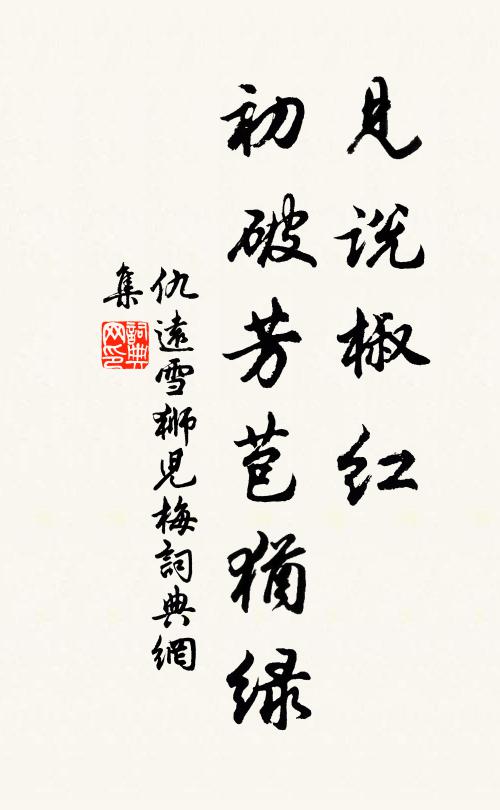 见说椒红
初破芳苞犹绿
仇远雪狮儿梅词典網
集
詞典
网印